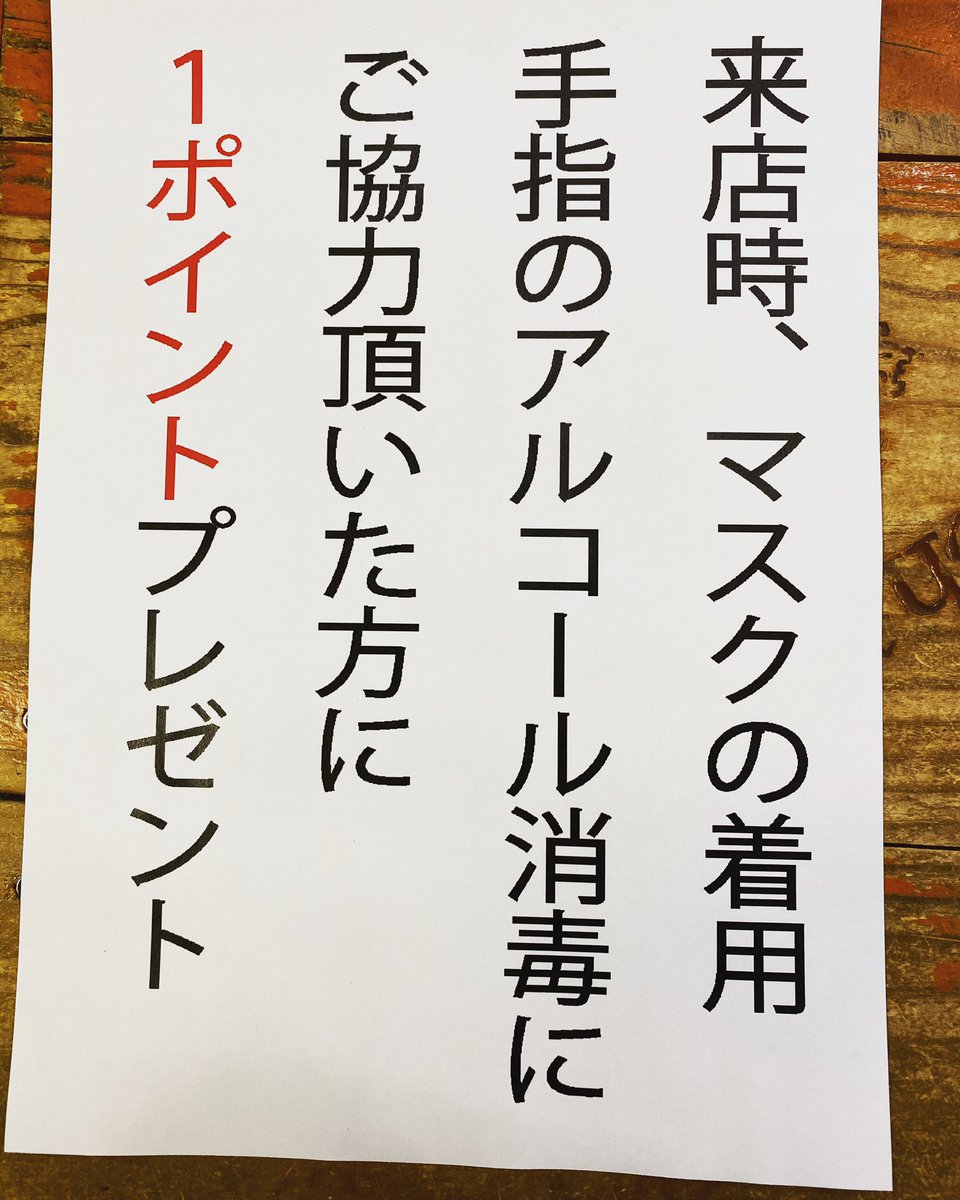 来店時、マスクの着用
手指のアルコール消毒に
ご協力頂いた方に
1ポイントプレゼント